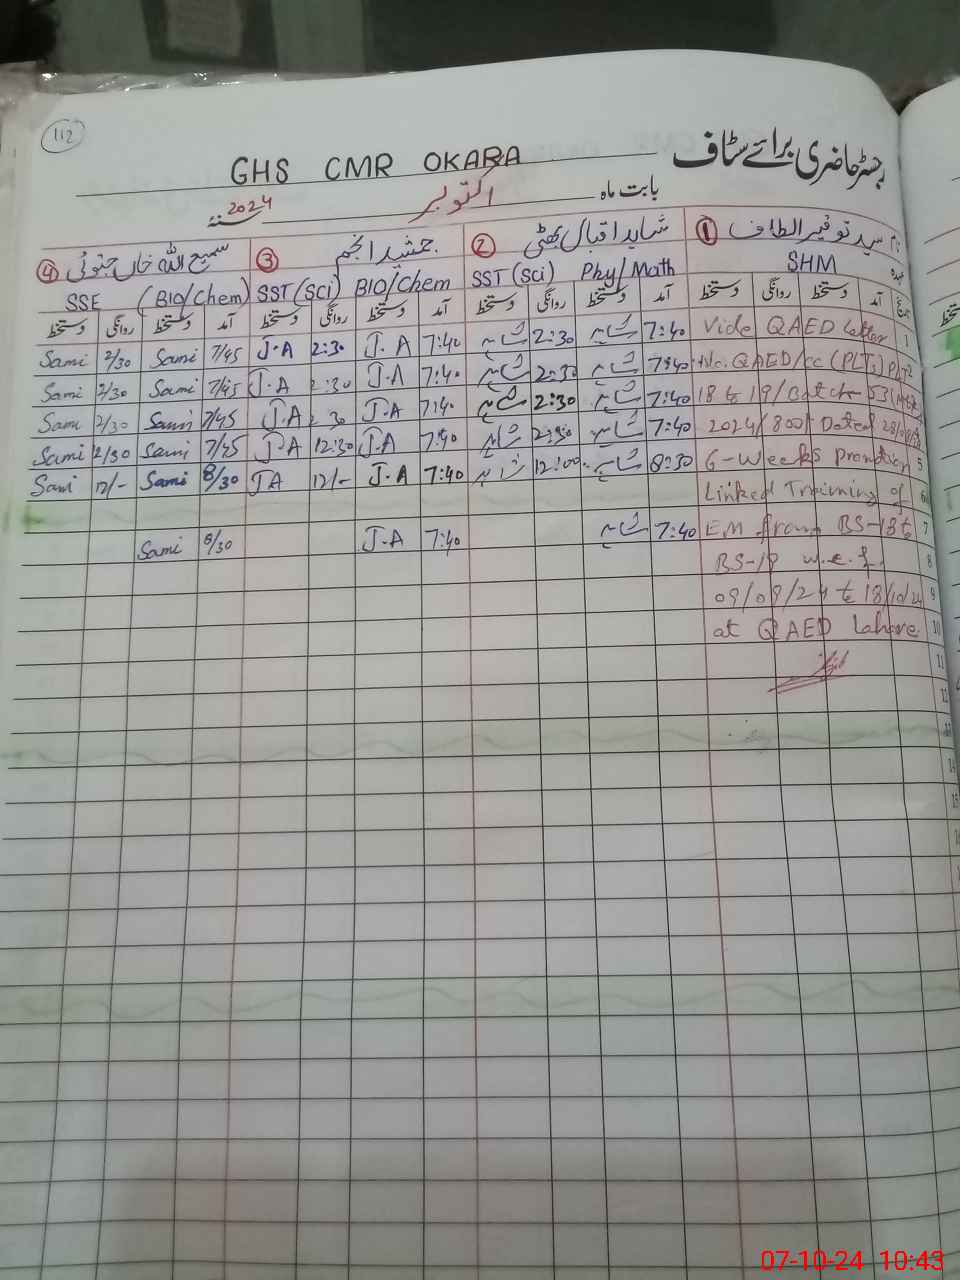 112
رجسٹر حاضری برائے سٹاف
GHS CMR OKARA
بابت ماہ اکتوبر 2024
نام ① سید توقیر الطاف ② شاہد اقبال بھٹی ③ جمشید انجم ④ سمیع اللہ خاں
عہدہ SHM SST (Sci) Phy/Math SST (Sci) BIO/Chem SSE (BIO/Chem)
تاریخ آمد دستخط روانگی دستخط آمد دستخط روانگی دستخط آمد دستخط روانگی دستخط آمد دستخط روانگی دستخط
1 Vide QAED letter 7:40 شاہد 2:30 شاہد 7:40 J.A 2:30 J.A 7/45 Sami 2/30 Sami
2 No. QAED/CC (PLTs) 7:40 شاہد 2:30 شاہد 7:40 J.A 2:30 J.A 7/45 Sami 2/30 Sami
18 to 19/Batch-53 7:40 شاہد 2:30 شاہد 7:40 J.A 30 J.A 7/45 Sami 2/30 Sami
2024/800 Dated 7:40 شاہد 2:30 شاہد 7:40 J.A 12:30 J.A 7/45 Sami 2/30 Sami
5 6-Weeks Promotion 8:30 شاہد 12:00 شاہد 7:40 J.A 12/- JA 8/30 Sami 12/- Sami
6 Linked Training of
7 EM from BS-18 to 7:40 شاہد 7:40 J.A 8/30 Sami
8 BS-19 w.e.f.
9 09/09/24 to 18/10/24
10 at QAED Lahore
11
12
13
14
15
07-10-24 10:43